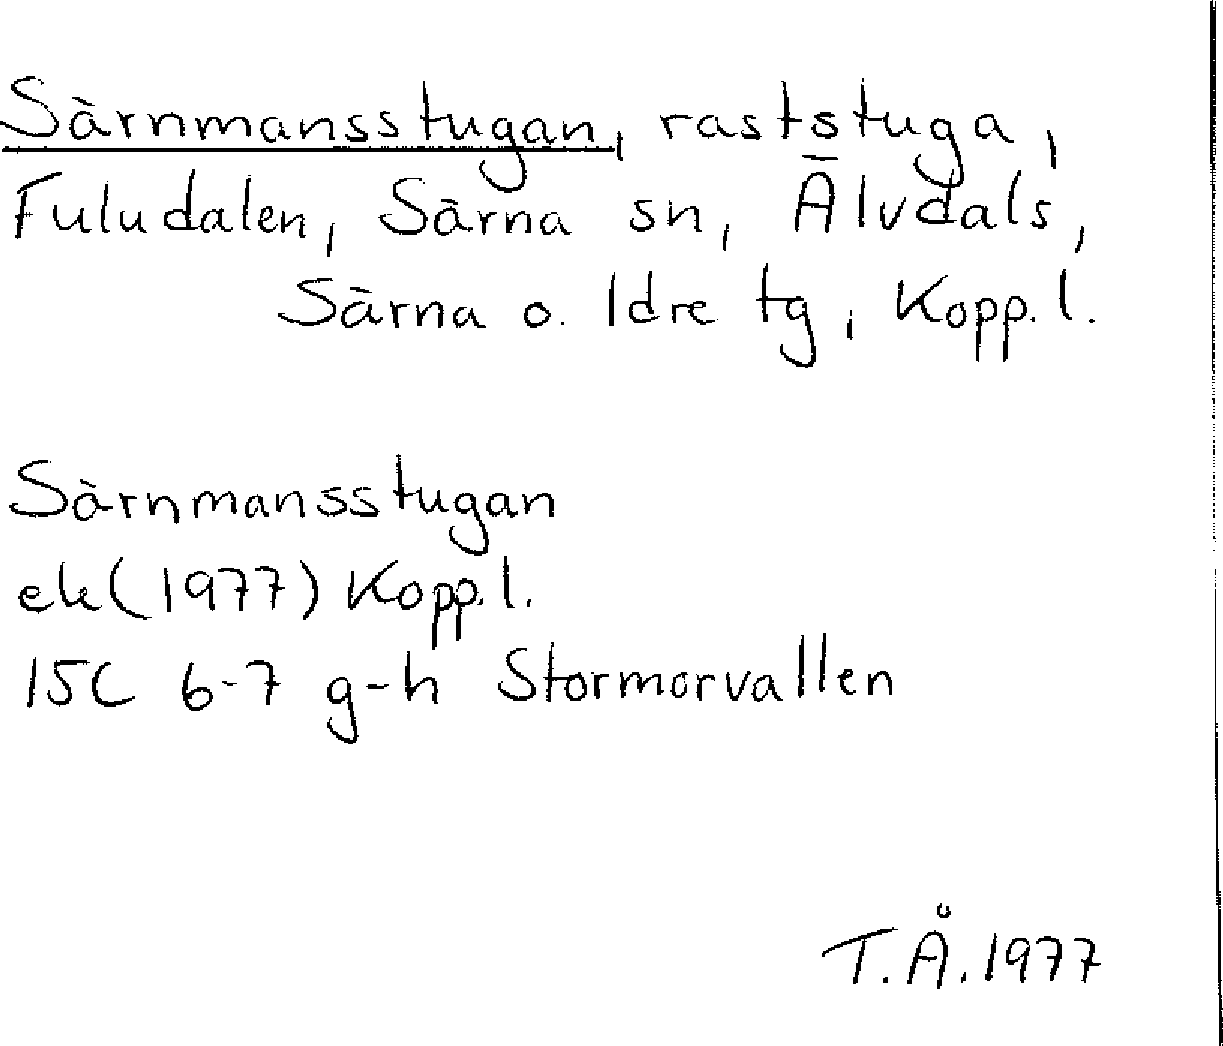 Särnmansstugan, raststuga,
Fuludalen, Särna sn, Älvdals,
Särna o. Idre tg, Kopp. l.
Särnmansstugan
ek (1977) Kopp. l.
15C 6-7 g-h Stormorvallen
T.Å. 1977